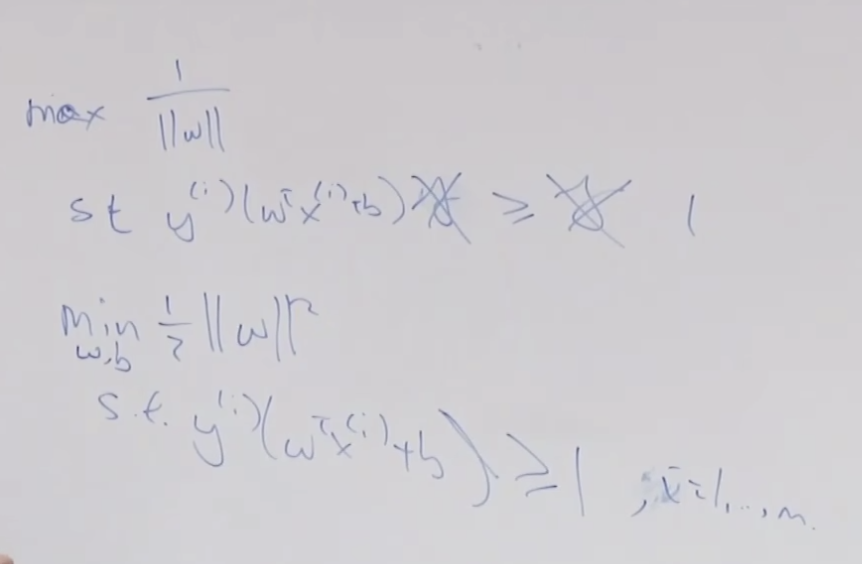 max 1/||w||
st y^(i)(w^T x^(i)+b) ≥ 1
min_{w,b} 1/2 ||w||^2
s.t. y^(i)(w^T x^(i)+b) ≥ 1, i=1,...,m.